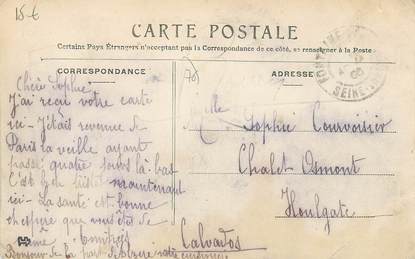 15 €
CARTE POSTALE
Certains Pays Étrangers n'acceptant pas la Correspondance de ce côté, se renseigner à la Poste
CORRESPONDANCE
ADRESSE
Chère Sophie
J'ai reçu votre carte
ici - J'étais revenue de
Paris la veille ayant
passé quatre jours là-bas
C'est bien triste maintenant
ici - La santé est bonne
j'espère que vous êtes de
même
Bonjour de la part de notre
Mlle
Sophie Courvoisier
Chalet-Osmont
Houlgate
Calvados
SEINE